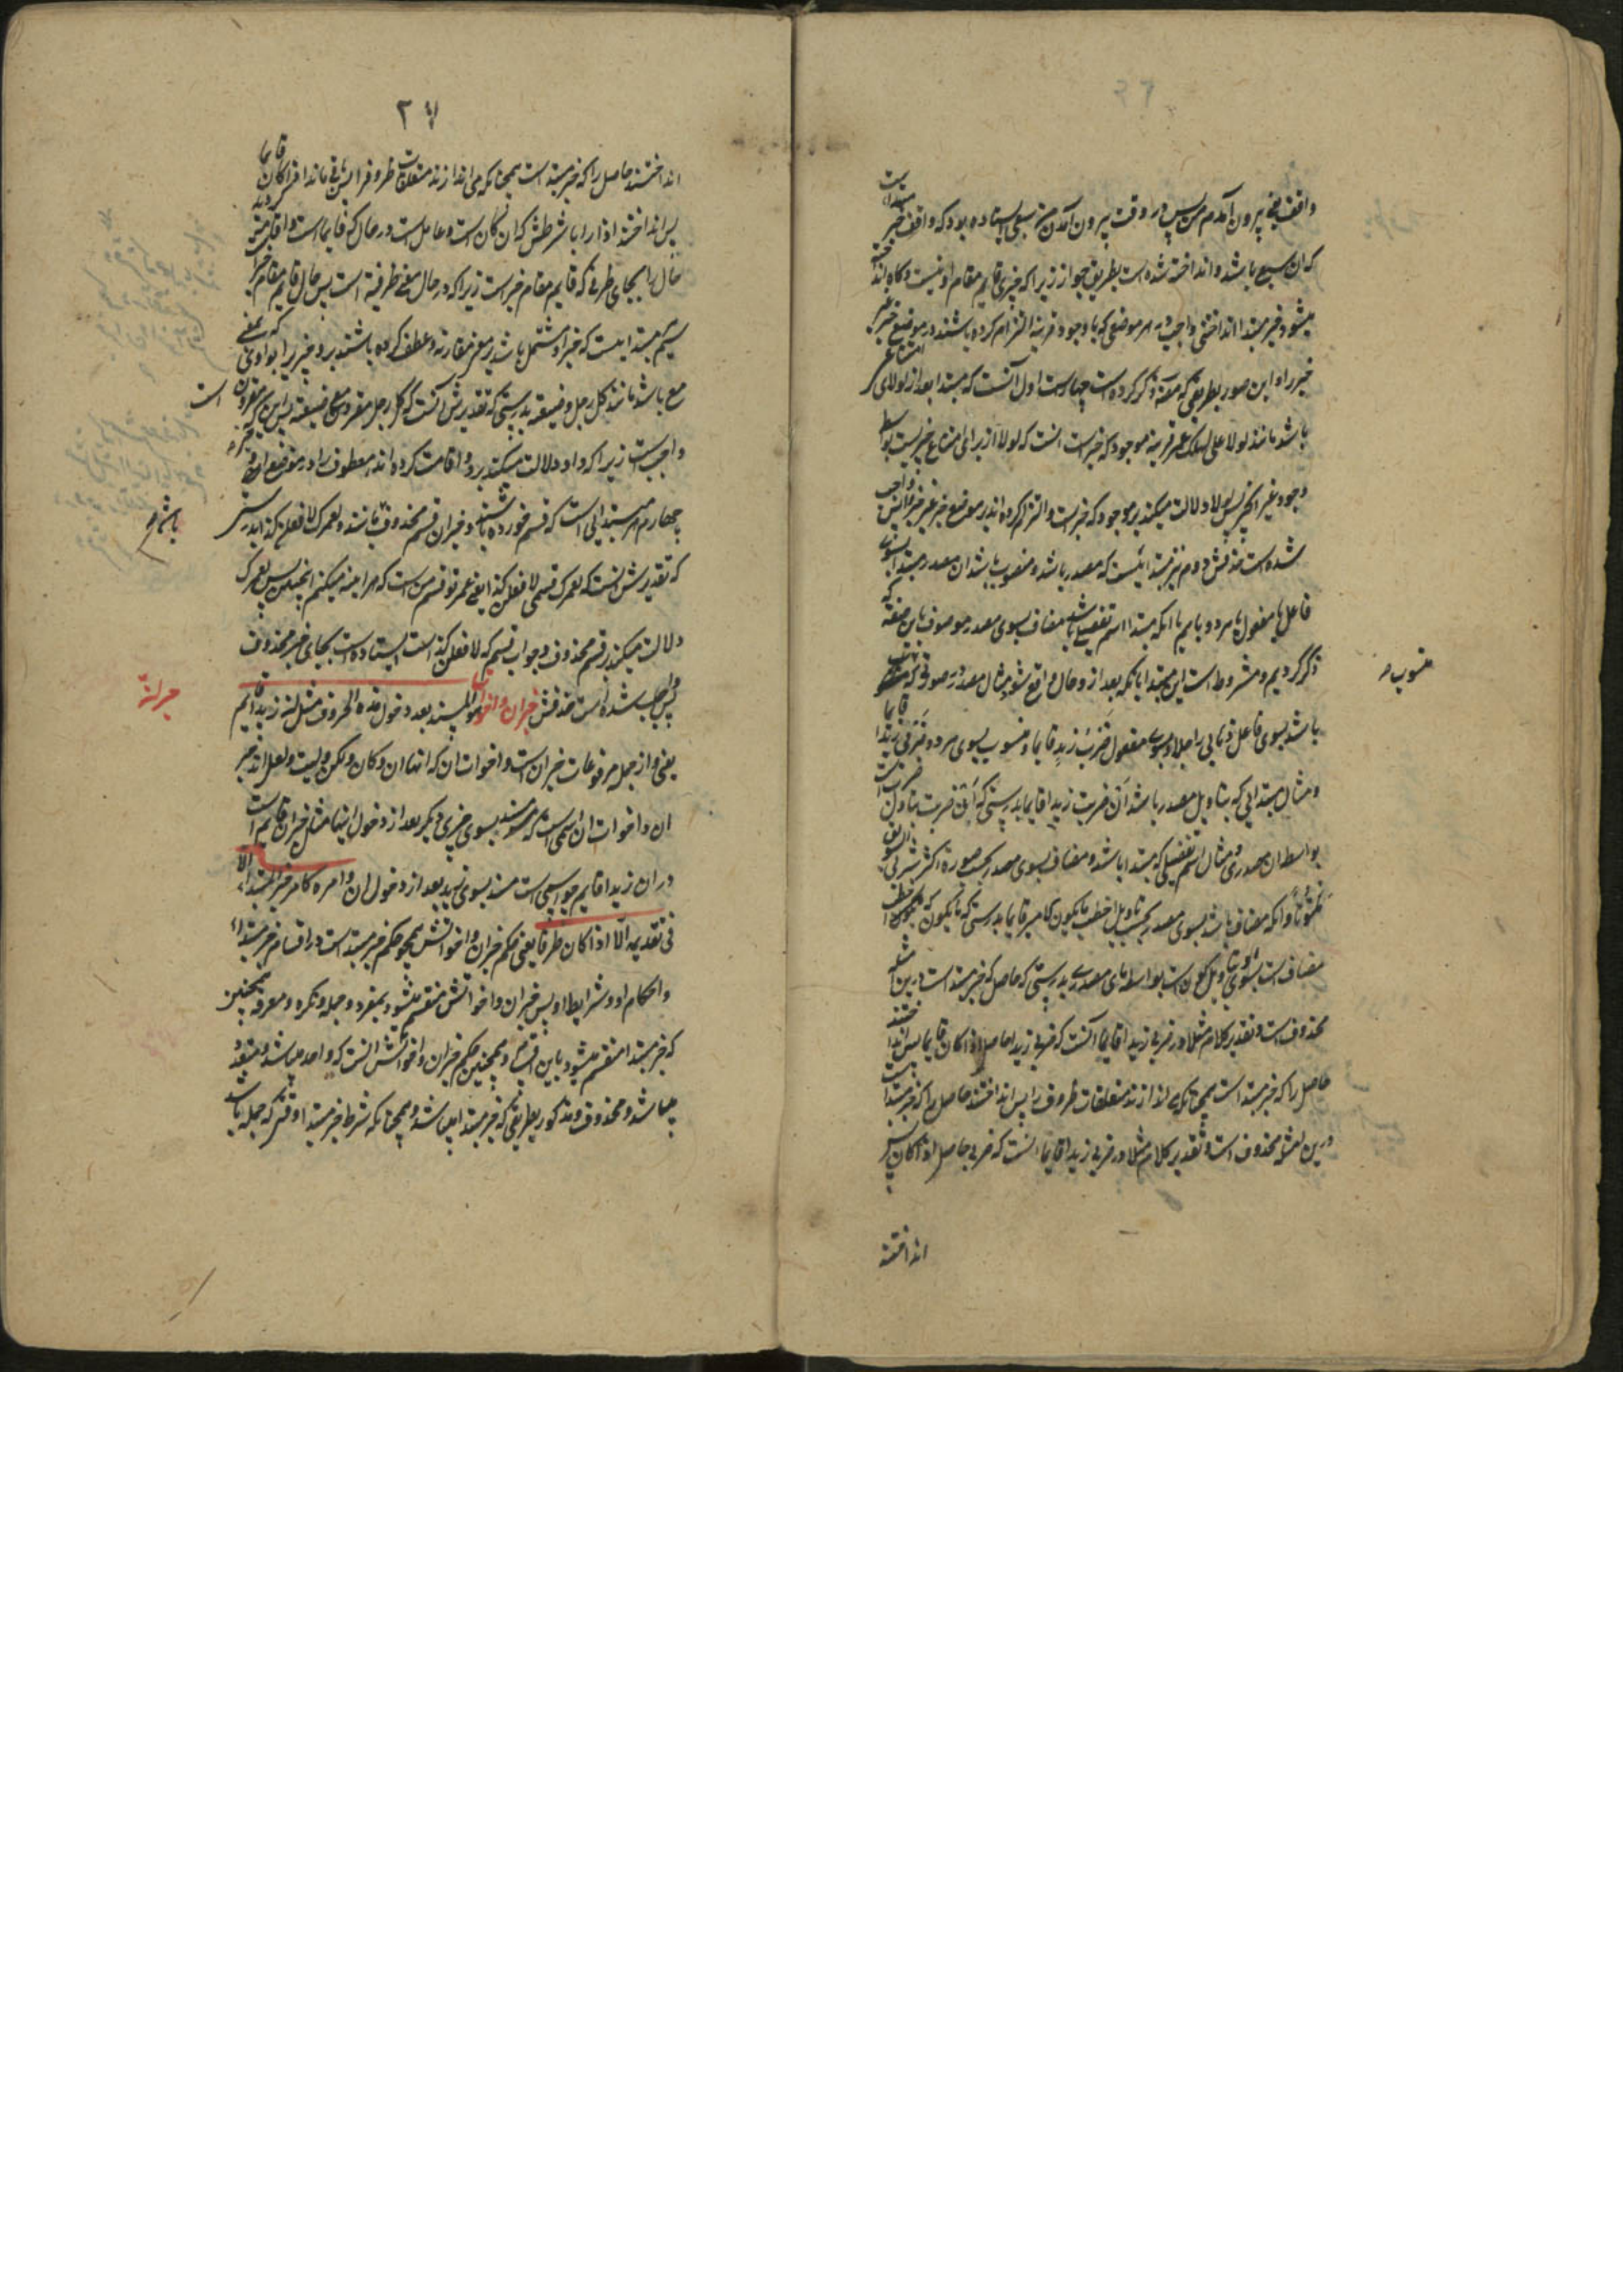 واقف یعنی بیرون آمدم من پس در وقت بیرون آمدن من سبع ایستاده بود که واقف خبر مبتدا است
که ان سبع باشد و انداخته شده است بطریق جواز زیرا که چیزی قایم مقام او نیست و گاه انداخته
میشود خبر مبتدا انداختنی واجب در هر موضعی که با وجود قرینه التزام کرده باشند در موضع خبر غیر
خبر را و این صور بطریقی که مصنف ذکر کرده است چهار است اول آنست که مبتدا بعد از لولای امتناعی
باشد مانند لولا علی لهلک عمر قرینه موجود که خبر است انست که لولا از برای امتناع چیزیست بواسطه
وجود غیر آن چیز پس لولا دلالت میکند بر موجود که خبر است و التزام کرده اند در موضع خبر غیر خبر را پس واجب
شده است حذفش دوم نیز مبتدائیست که مصدر باشد و منسوب باشد ان مصدر مبتدا بسوی
فاعل یا مفعول یا هر دو یا بهم یا آنکه مبتدا اسم تفضیل باشد مضاف بسوی مصدر موصوف باین صفة که
ذکر کردیم و مشروط است این مبتدا بانکه بعد از و حال واقع شود مثال مصدر در صورتی که منسوب
منسوب
باشد بسوی فاعل ذهابی راجلا و بسوی مفعول ضرب زید قایما و منسوب بسوی هر دو ضربی زیدا قایما
و مثال مبتدایی که بتاویل مصدر باشد ان ضربت زیدا قایما بدرستی که ان ضربت بتاویل ضربت است
بواسطه ان مصدری و مثال اسم تفضیلی که مبتدا باشد و مضاف بسوی مصدر بحسب صورة اکثر شربی السویق
ملتوتا و انکه مضاف باشد بسوی مصدر بحسب تاویل اخطب ما یکون الامیر قایما بدرستی که ما یکون که اخطب
مضاف است بسوی او بتاویل کون است بواسطه مای مصدری بدرستی که حاصل که خبر مبتدا است درین امثله
محذوف است و تقدیر کلام مثلا در ضربی زیدا قایما آنست که ضربی زیدا حاصل اذا کان قایما پس انداختند
حاصل را که خبر مبتدا است همچنانکه می اندازند متعلقات ظروف را پس انداختند حاصل را که خبر مبتدا است
درین امثله محذوف است و تقدیر کلام مثلا در ضربی زیدا قایما انست که ضربی حاصل اذا کان پس
انداختند
۲۷
انداختند حاصل را که خبر مبتدا است همچنانکه می اندازند متعلقات ظروف را پس باقی ماند اذا کان قایما
پس انداختند اذا را با شرطش که ان کان است و عامل است در حال که قایما است و اقامت کردند
حال را بجای ظرفی که قایم مقام خبر است زیرا که در حال معنی ظرفیة است پس حال قایم مقام خبر است
سیم مبتدا ایست که خبر او مشتمل باشد بر معنی مقارنه و عطف کرده باشند برو چیزی را بواوی که بمعنی
مع باشد مانند کل رجل و ضیعته بدرستی که تقدیرش آنست که کل رجل مقرون مع ضیعته پس این خبر که مقرون است
واجبست زیرا که واو دلالت میکند برو و اقامت کرده اند معطوف را در موضع او
چهارم هر مبتدایی است که قسم خورده باشند و خبر ان قسم محذوف باشد مانند لعمرک لافعلن کذا بدرستی
باشد
که تقدیرش آنست که لعمرک قسمی لافعلن کذا یعنی عمر تو قسم من است که هراینه میکنم اینچنین پس لعمرک
دلالت میکند بر قسم محذوف و جواب قسم که لافعلن کذا است ایستاده است بجای خبر محذوف
پس واجب شده است حذفش خبر ان و اخواتها هو المسند بعد دخول هذه الحروف مثل ان زیدا قایم
یعنی و از جمله مرفوعات خبر ان است و اخوات ان که انها ان و کان و لکن و لیت و لعل اند خبر
ان و اخوات ان اسمی است که مسند بسوی چیزی دیگر بعد از دخول اینها مثل خبر ان قایم است
در ان زیدا قایم چو اسمی است مسند بسوی زید بعد از دخول ان و امره کامر خبر المبتدا الا
فی تقدیمه الا اذا کان ظرفا یعنی حکم خبر ان و اخواتش همچو حکم خبر مبتدا است در اقسام خبر مبتدا
و احکام او و شرایط او پس خبر ان و اخواتش منقسم میشود بمفرد و جمله و نکره و معرفه همچنین
که خبر مبتدا منقسم میشود باین اقسام و همچنین حکم خبر ان و اخواتش انست که واحد میباشد و متعدد
میباشد و محذوف و مذکور بطریقی که خبر مبتدا میباشد و همچنانکه شرط خبر مبتدا وقتی که جمله باشد